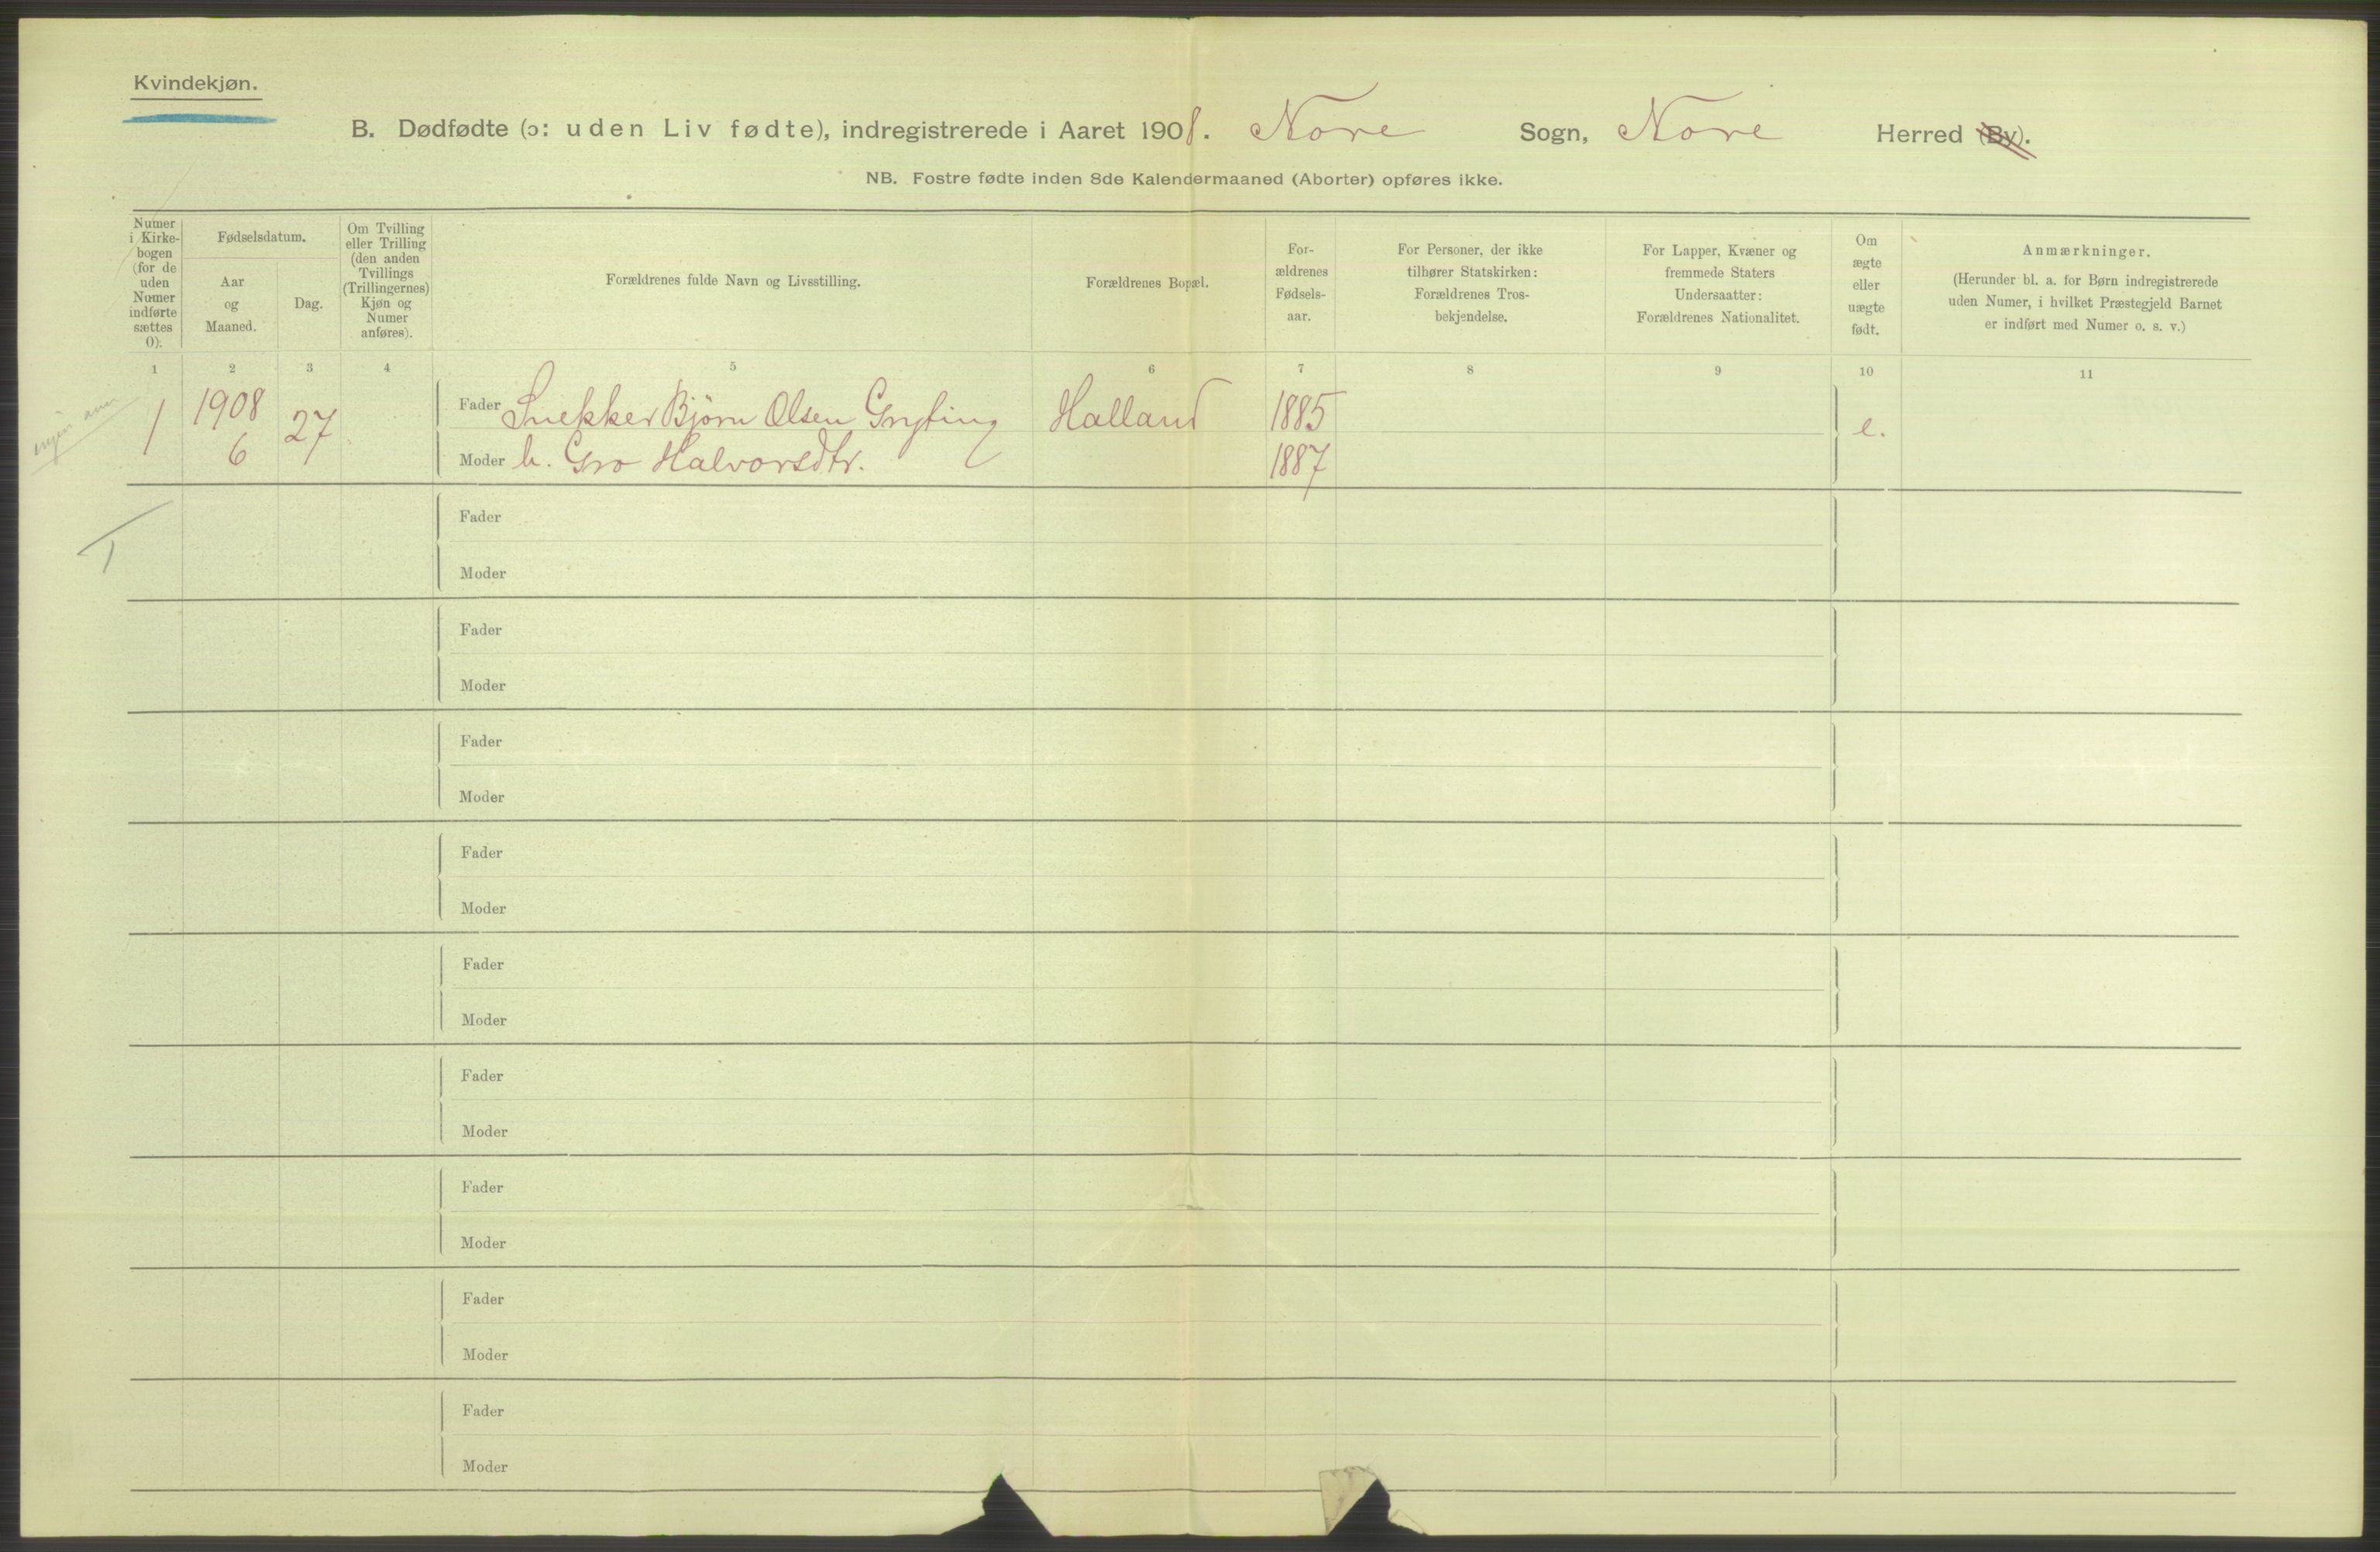 Kvindekjøn.
B. Dødfødte (ɔ: uden Liv fødte), indregistrerede i Aaret 1908. Nore Sogn, Nore Herred (By).
NB. Fostre fødte inden 8de Kalendermaaned (Aborter) opføres ikke.
Numer i Kirkebogen (for de uden Numer indførte sættes 0).
Fødselsdatum.
Aar og Maaned.
Dag.
Om Tvilling eller Trilling (den anden Tvillings (Trillingernes) Kjøn og Numer anføres).
Forældrenes fulde Navn og Livsstilling.
Forældrenes Bopæl.
For-ældrenes Fødsels-aar.
For Personer, der ikke tilhører Statskirken: Forældrenes Tros-bekjendelse.
For Lapper, Kvæner og fremmede Staters Undersaatter: Forældrenes Nationalitet.
Om ægte eller uægte født.
Anmærkninger.
(Herunder bl. a. for Børn indregistrerede uden Numer, i hvilket Præstegjeld Barnet er indført med Numer o. s. v.)
1 2 3 4 5 6 7 8 9 10 11
1 1908 6 27 Fader Snekker Bjørn Olsen Halland 1885 e.
Moder h. Gro Halvorsdtr. 1887
Fader
Moder
Fader
Moder
Fader
Moder
Fader
Moder
Fader
Moder
Fader
Moder
Fader
Moder
Fader
Moder
Fader
Moder